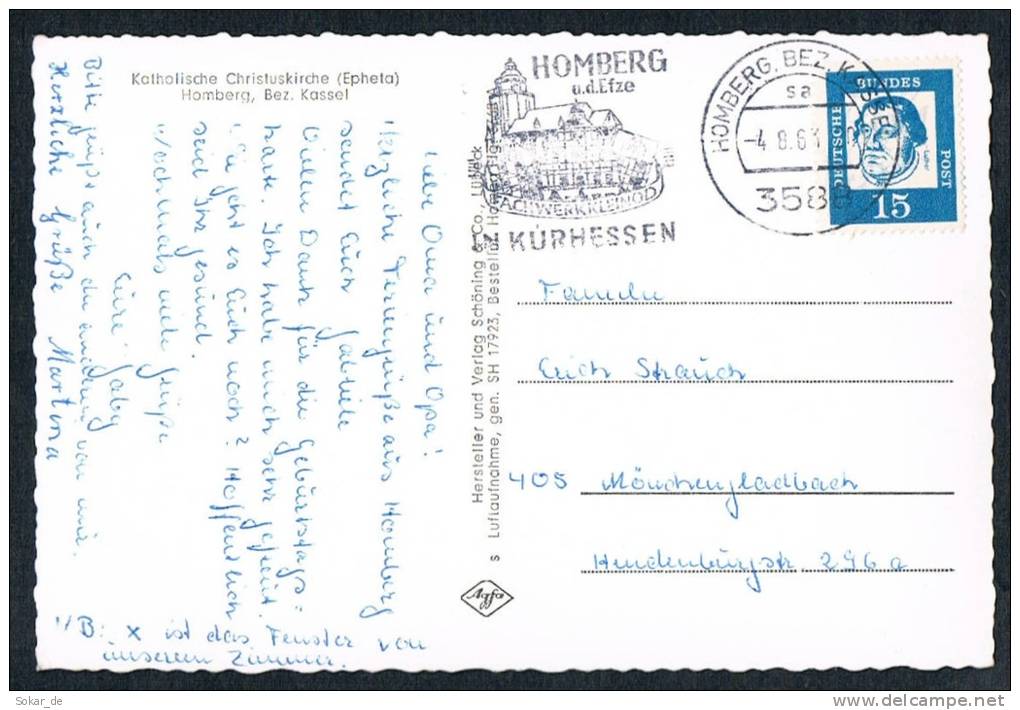 Katholische Christuskirche (Epheta)
Homberg, Bez. Kassel
Liebe Oma und Opa!
Herzliche Feriengrüße aus Homberg
sendet Euch Gabriele
Vielen Dank für die Geburtstags=
karte. Ich habe mich sehr gefreut.
Wie geht es Euch noch? Hoffentlich
seid Ihr gesund.
Nochmals viele Grüße
Eure Gaby
Bitte grüßt auch die anderen von mir.
Herzliche Grüße Martina
NB: x ist das Fenster von
unserem Zimmer.
Hersteller und Verlag Schöning & Co., Lübeck
s Luftaufnahme, gen. SH 17923, Bestell
Agfa
HOMBERG
a.d.Efze
FACHWERKKLEINOD
KURHESSEN
HOMBERG, BEZ. KASSEL
sa
-4.8.63
3588
DEUTSCHE
BUNDES
POST
Luther
15
Familie
Erich Strauch
405 Mönchengladbach
Hindenburgstr. 296a
Sokar_de
www.delcampe.net